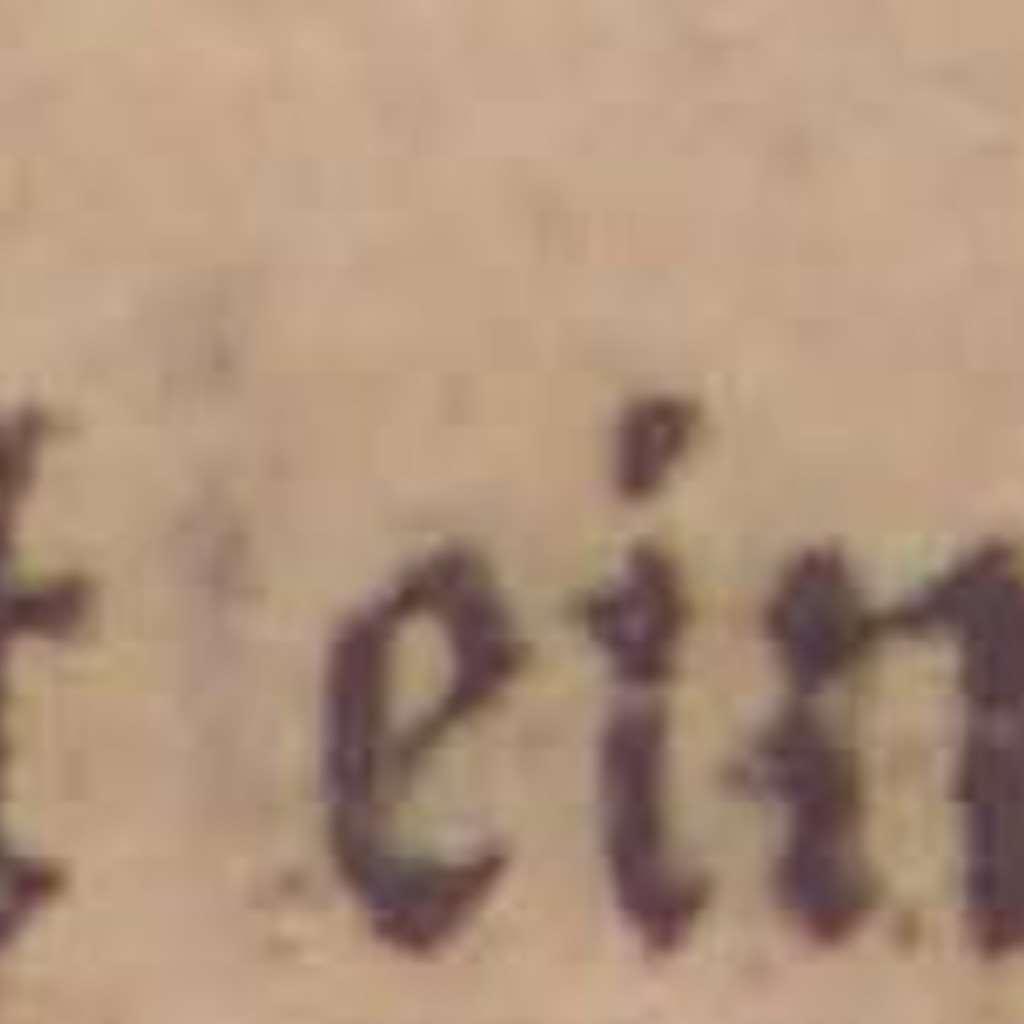 t ein